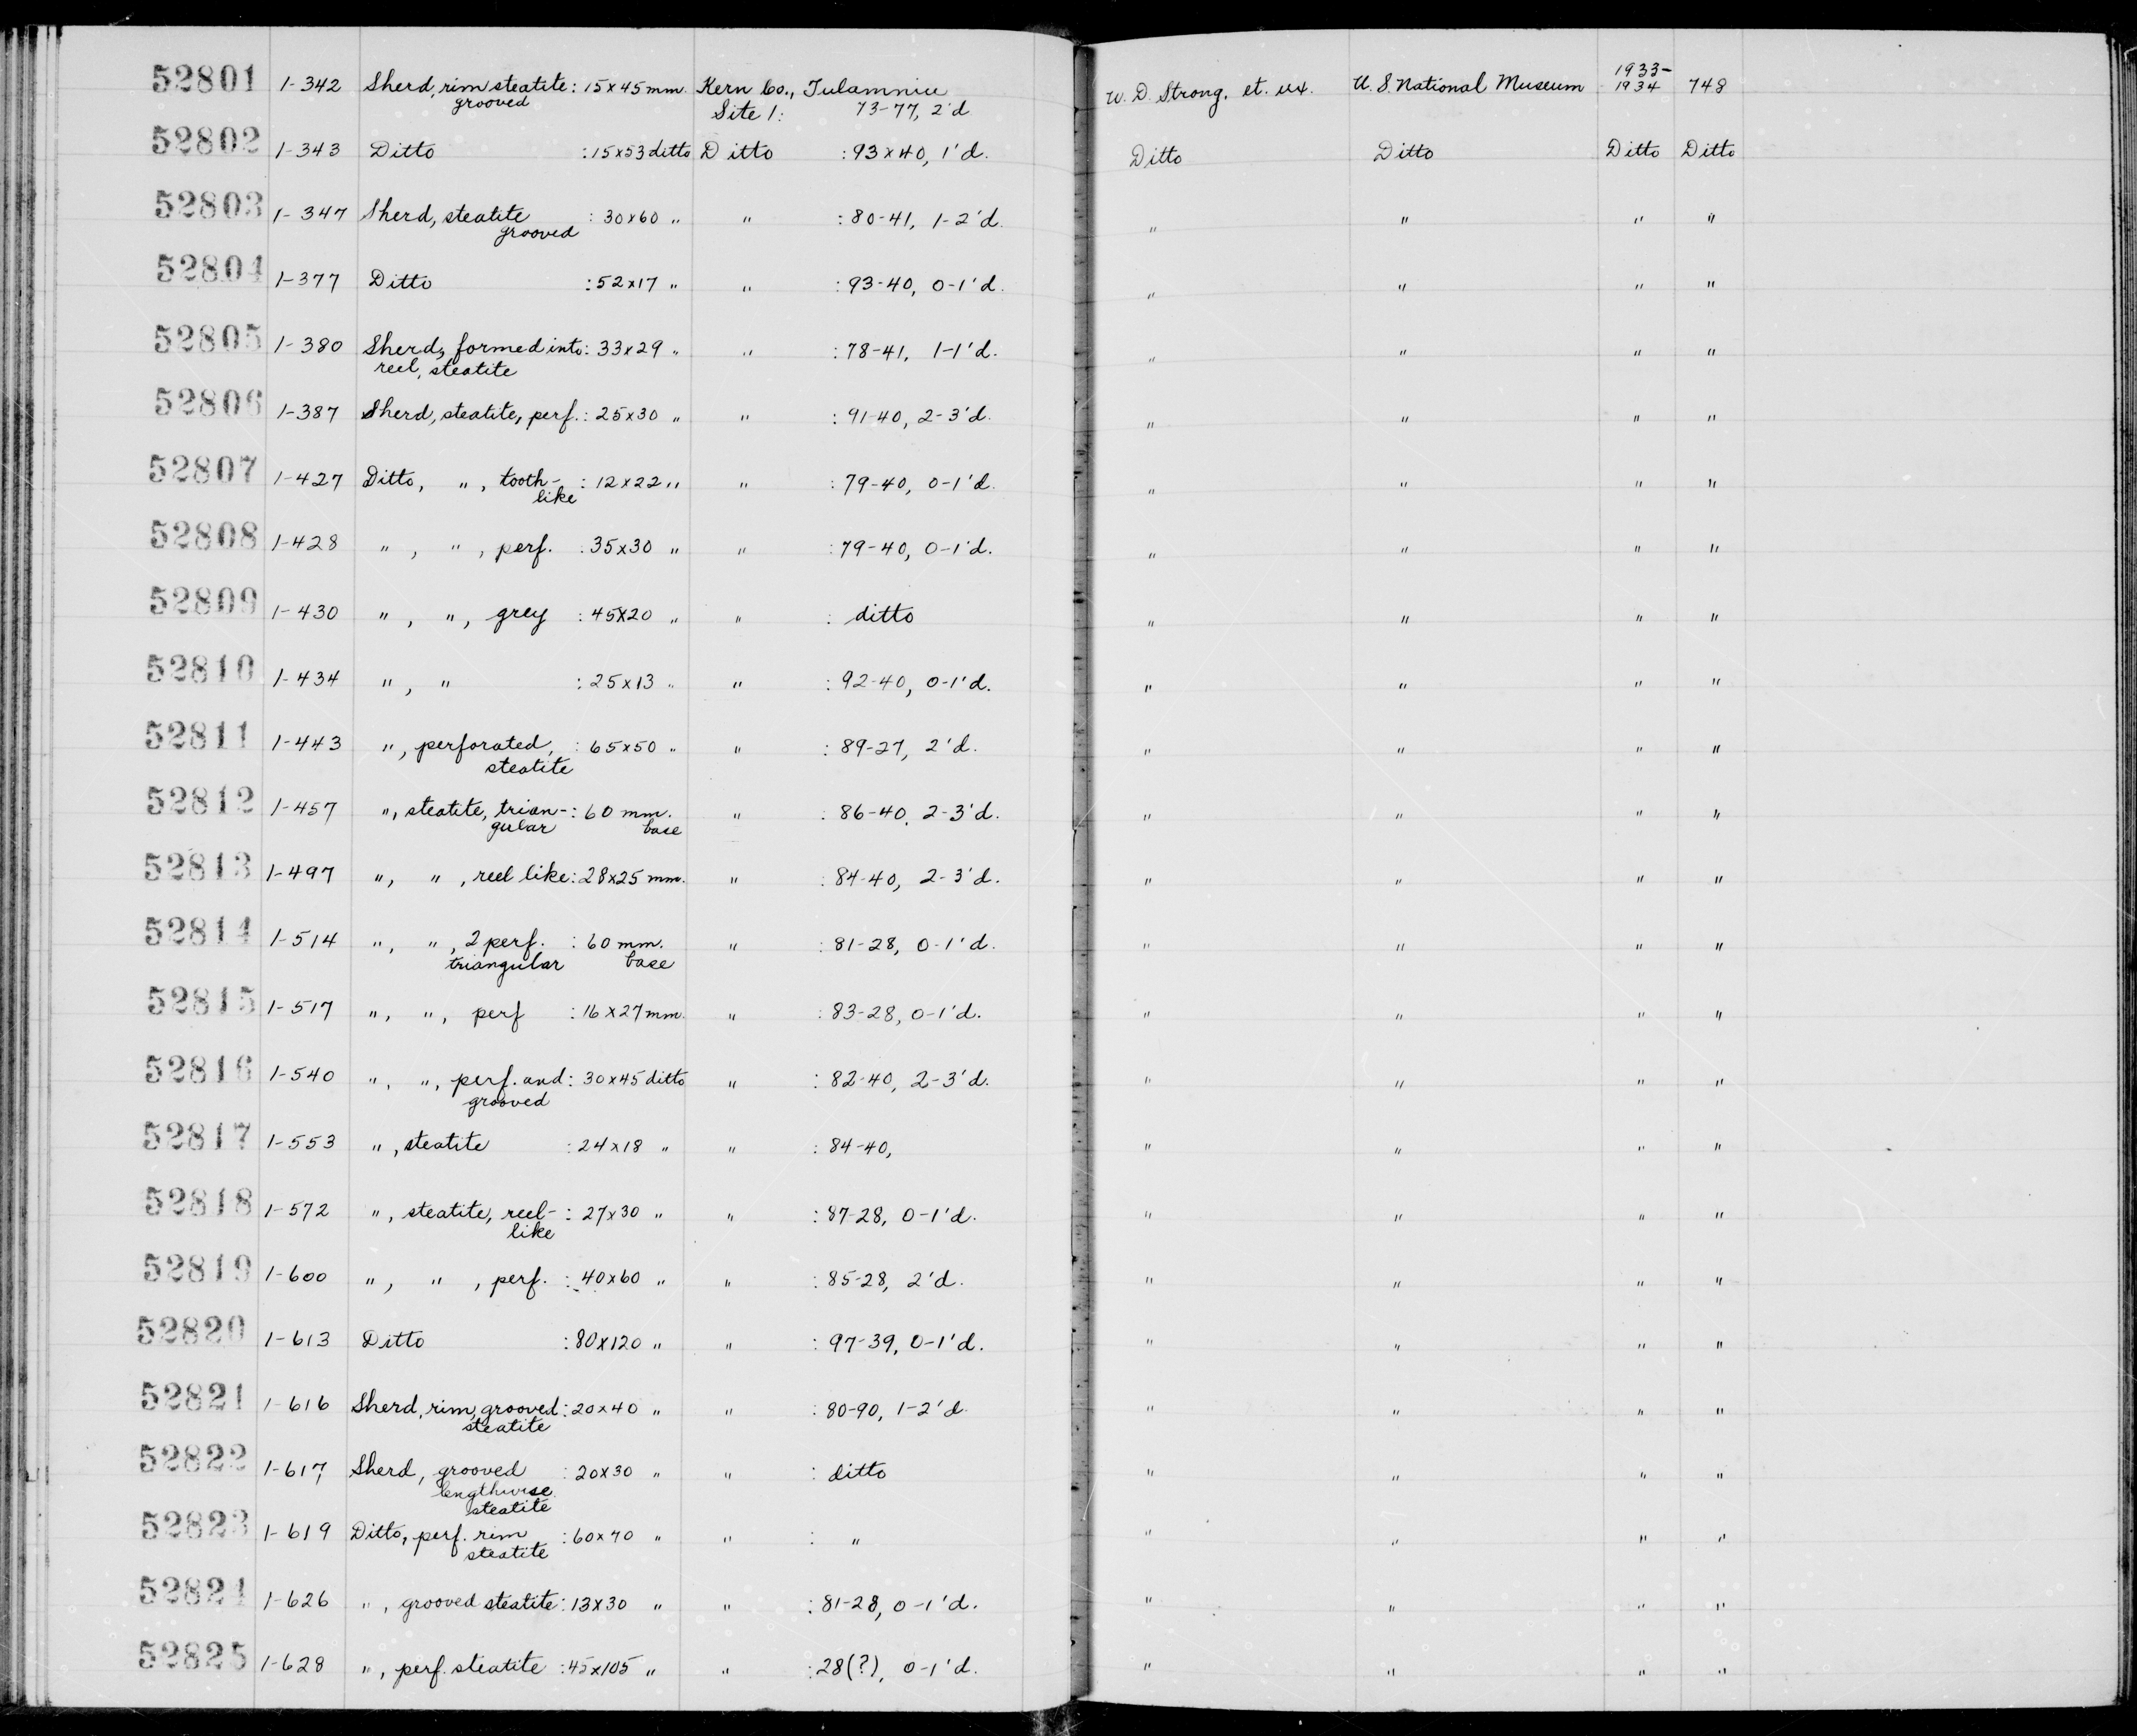 52801 1-342 Sherd, rim steatite : 15x45 mm. Kern Co., Tulamniu W. D. Strong, et. ux. U. S. National Museum 1933-1934 748
grooved Site 1: 73-77, 2'd
52802 1-343 Ditto : 15x53 ditto Ditto : 93x40, 1'd. Ditto Ditto Ditto Ditto
52803 1-347 Sherd, steatite : 30x60 " " : 80-41, 1-2'd. " " " "
grooved
52804 1-377 Ditto : 52x17 " " : 93-40, 0-1'd. " " " "
52805 1-380 Sherd, formed into : 33x29 " " : 78-41, 1-1'd. " " " "
reel, steatite
52806 1-387 Sherd, steatite, perf. : 25x30 " " : 91-40, 2-3'd. " " " "
52807 1-427 Ditto, " , tooth- : 12x22 " " : 79-40, 0-1'd. " " " "
like
52808 1-428 " , " , perf. : 35x30 " " : 79-40, 0-1'd. " " " "
52809 1-430 " , " , grey : 45x20 " " : ditto " " " "
52810 1-434 " , " : 25x13 " " : 92-40, 0-1'd. " " " "
52811 1-443 " , perforated, : 65x50 " " : 89-27, 2'd. " " " "
steatite
52812 1-457 " , steatite, trian- : 60 mm. " : 86-40, 2-3'd. " " " "
gular base
52813 1-497 " , " , reel like : 28x25 mm. " : 84-40, 2-3'd. " " " "
52814 1-514 " , " , 2 perf. : 60 mm. " : 81-28, 0-1'd. " " " "
triangular base
52815 1-517 " , " , perf : 16x27 mm. " : 83-28, 0-1'd. " " " "
52816 1-540 " , " , perf. and : 30x45 ditto " : 82-40, 2-3'd. " " " "
grooved
52817 1-553 " , steatite : 24x18 " " : 84-40, " " " "
52818 1-572 " , steatite, reel- : 27x30 " " : 87-28, 0-1'd. " " " "
like
52819 1-600 " , " , perf. : 40x60 " " : 85-28, 2'd. " " " "
52820 1-613 Ditto : 80x120 " " : 97-39, 0-1'd. " " " "
52821 1-616 Sherd, rim, grooved : 20x40 " " : 80-90, 1-2'd. " " " "
steatite
52822 1-617 Sherd, grooved : 20x30 " " : ditto " " " "
lengthwise
steatite
52823 1-619 Ditto, perf. rim : 60x70 " " : " " " " "
steatite
52824 1-626 " , grooved steatite : 13x30 " " : 81-28, 0-1'd. " " " "
52825 1-628 " , perf. steatite : 45x105 " " : 28(?), 0-1'd. " " " "